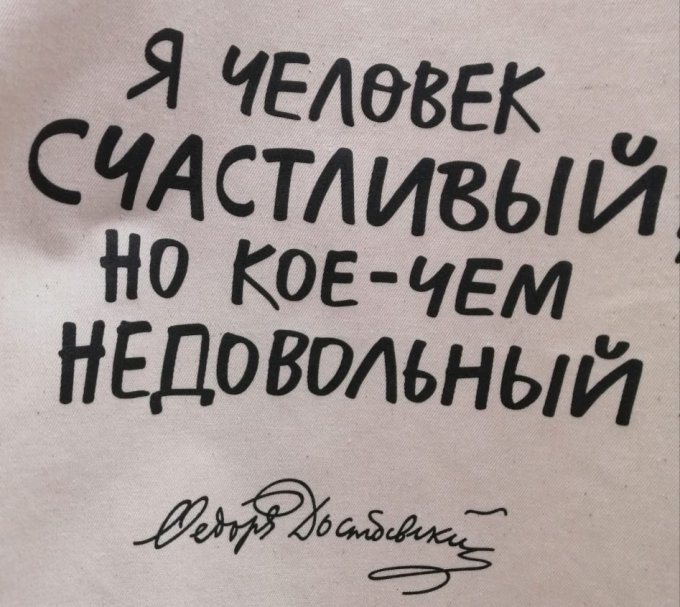 Я ЧЕЛОВЕК
СЧАСТЛИВЫЙ,
НО КОЕ-ЧЕМ
НЕДОВОЛЬНЫЙ
Ѳедоръ Достоевский